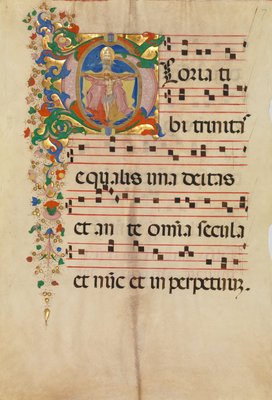 Gloria ti
bi trinitas
equalis una deitas
et an te omia secula
et nuc et in perpetuum.